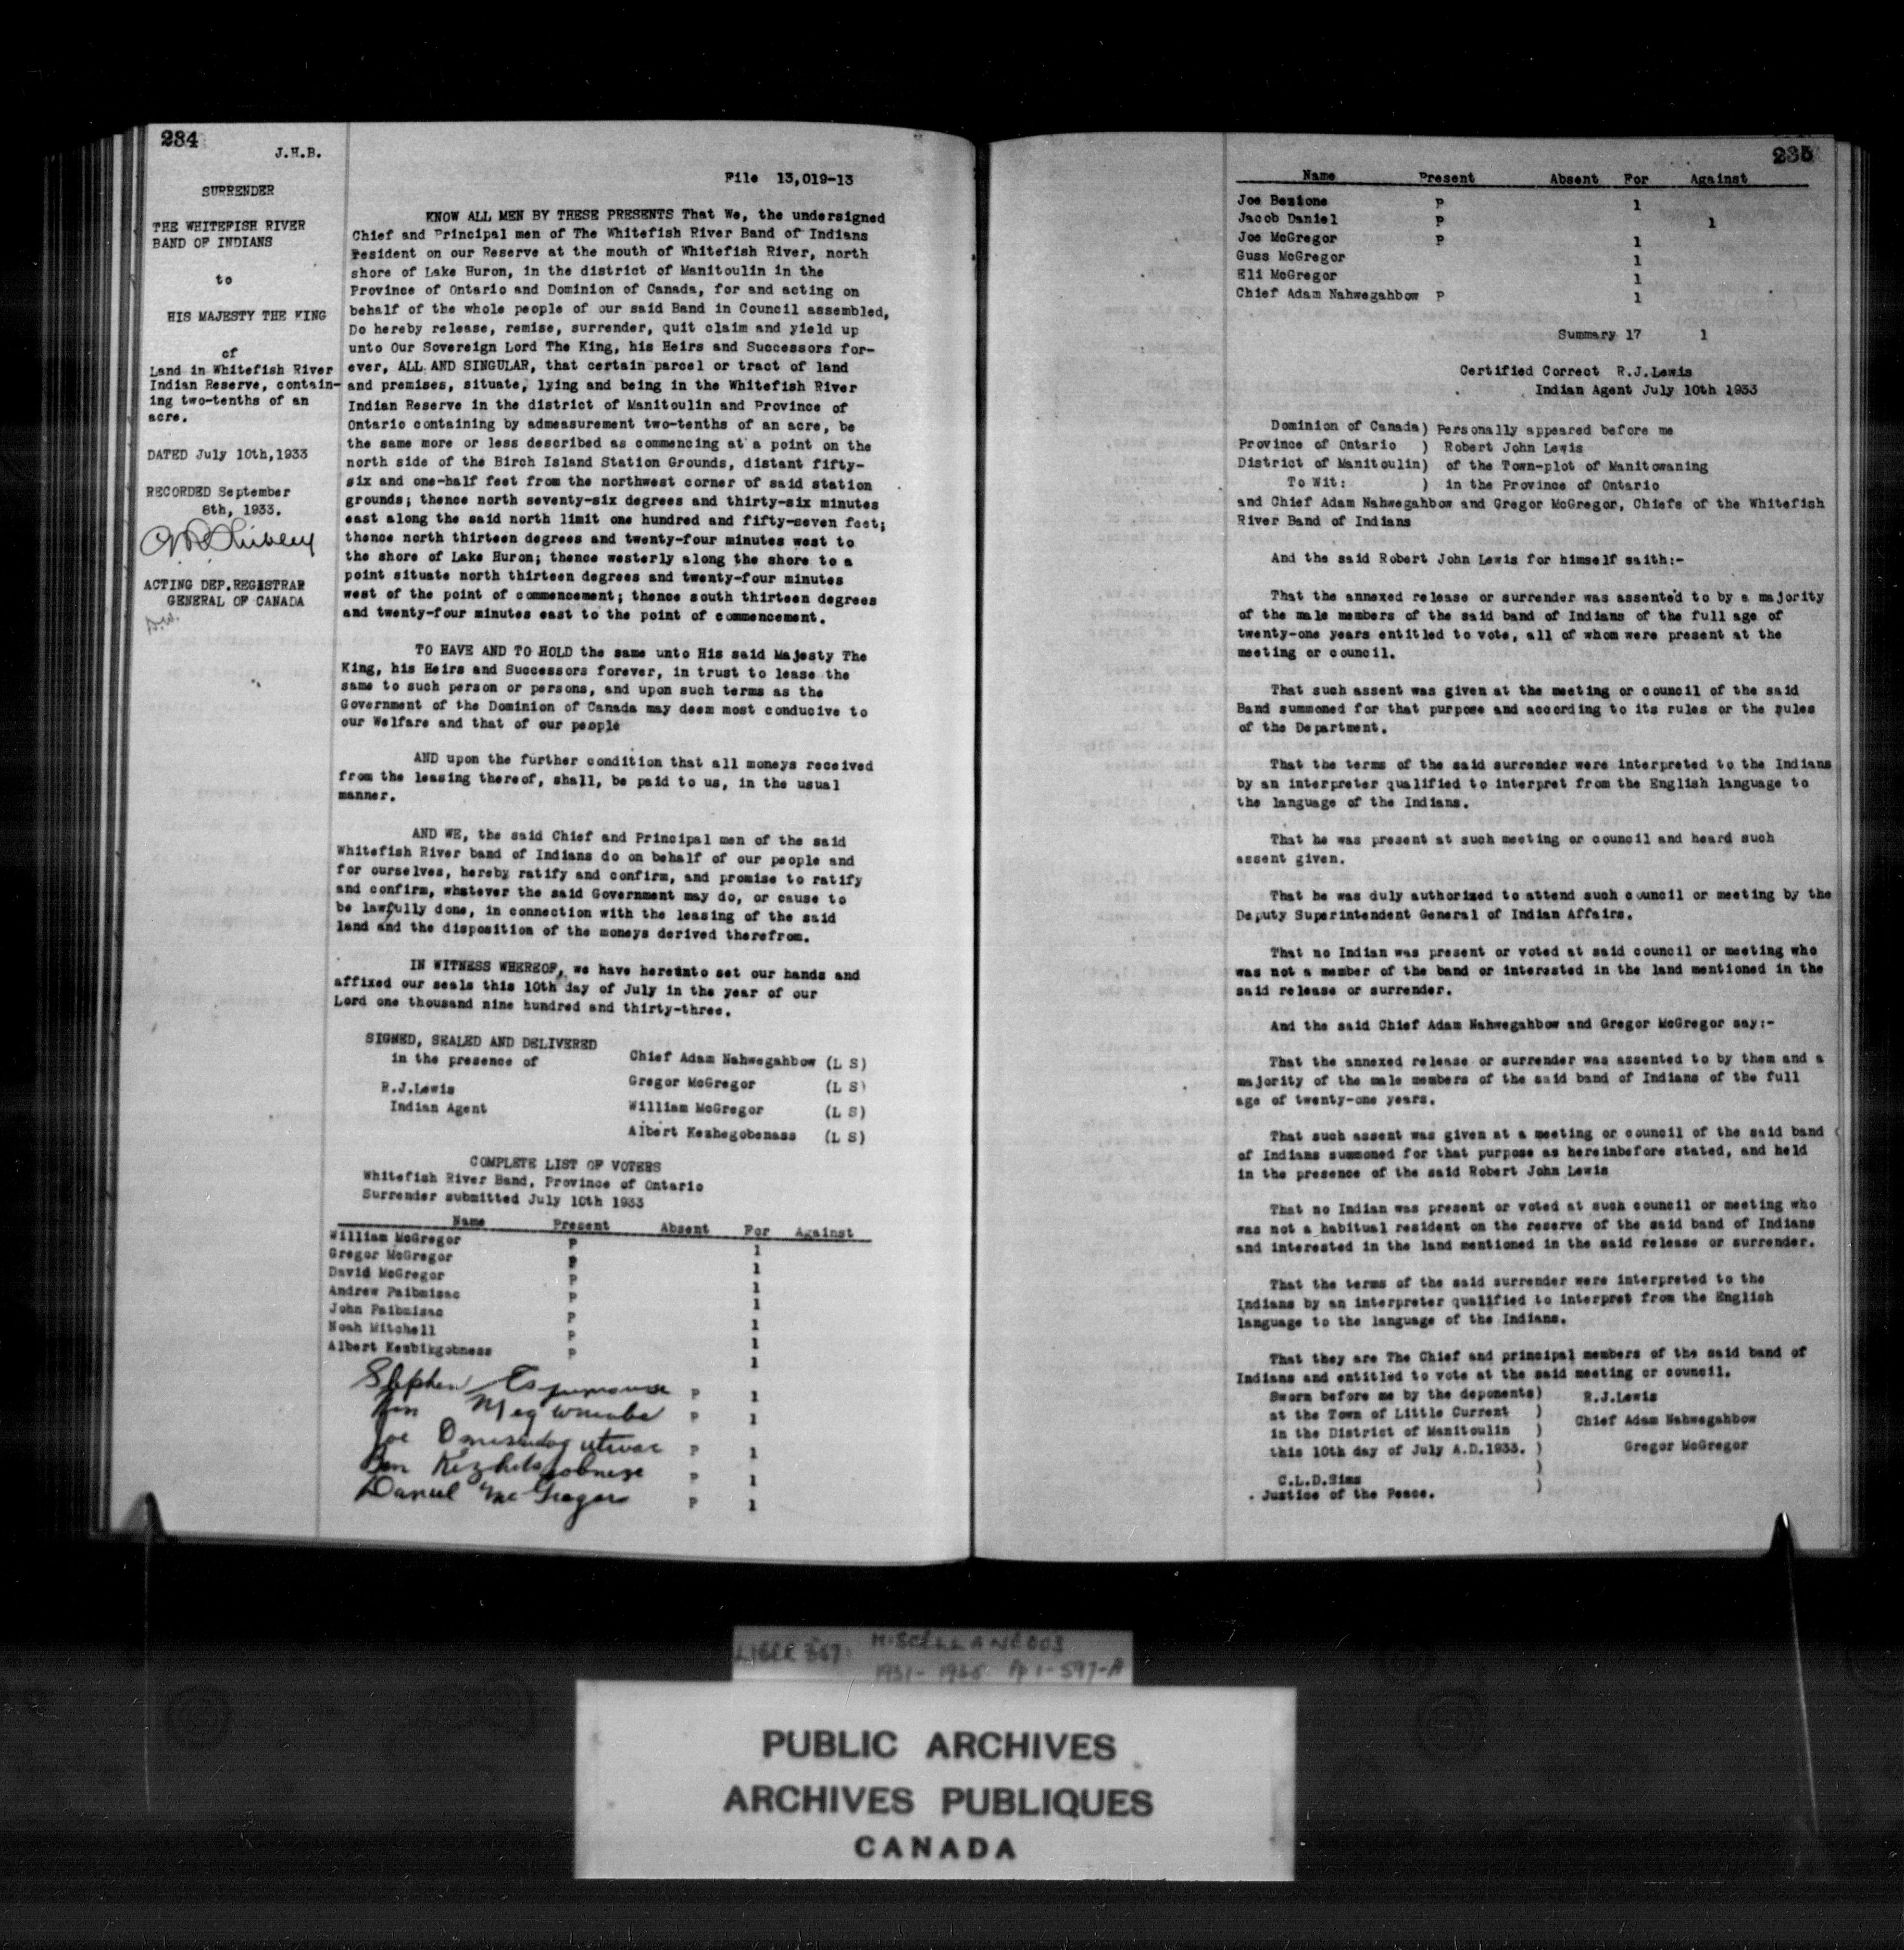 234
J.H.B.
SURRENDER
THE WHITEFISH RIVER
BAND OF INDIANS
to
HIS MAJESTY THE KING
of
Land in Whitefish River
Indian Reserve, contain-
ing two-tenths of an
acre.
DATED July 10th, 1933
RECORDED September
8th, 1933.
ACTING DEP. REGISTRAR
GENERAL OF CANADA
File 13,019-13
KNOW ALL MEN BY THESE PRESENTS That We, the undersigned
Chief and Principal men of The Whitefish River Band of Indians
resident on our Reserve at the mouth of Whitefish River, north
shore of Lake Huron, in the district of Manitoulin in the
Province of Ontario and Dominion of Canada, for and acting on
behalf of the whole people of our said Band in Council assembled,
Do hereby release, remise, surrender, quit claim and yield up
unto Our Sovereign Lord The King, his Heirs and Successors for-
ever, ALL AND SINGULAR, that certain parcel or tract of land
and premises, situate, lying and being in the Whitefish River
Indian Reserve in the district of Manitoulin and Province of
Ontario containing by admeasurement two-tenths of an acre, be
the same more or less described as commencing at a point on the
north side of the Birch Island Station Grounds, distant fifty-
six and one-half feet from the northwest corner of said station
grounds; thence north seventy-six degrees and thirty-six minutes
east along the said north limit one hundred and fifty-seven feet;
thence north thirteen degrees and twenty-four minutes west to
the shore of Lake Huron; thence westerly along the shore to a
point situate north thirteen degrees and twenty-four minutes
west of the point of commencement; thence south thirteen degrees
and twenty-four minutes east to the point of commencement.
TO HAVE AND TO HOLD the same unto His said Majesty The
King, his Heirs and Successors forever, in trust to lease the
same to such person or persons, and upon such terms as the
Government of the Dominion of Canada may deem most conducive to
our Welfare and that of our people
AND upon the further condition that all moneys received
from the leasing thereof, shall, be paid to us, in the usual
manner.
AND WE, the said Chief and Principal men of the said
Whitefish River band of Indians do on behalf of our people and
for ourselves, hereby ratify and confirm, and promise to ratify
and confirm, whatever the said Government may do, or cause to
be lawfully done, in connection with the leasing of the said
land and the disposition of the moneys derived therefrom.
IN WITNESS WHEREOF, we have hereunto set our hands and
affixed our seals this 10th day of July in the year of our
Lord one thousand nine hundred and thirty-three.
SIGNED, SEALED AND DELIVERED
in the presence of
R.J.Lewis
Indian Agent
Chief Adam Nahwegahbow (L S)
Gregor McGregor (L S)
William McGregor (L S)
Albert Kezhegobenass (L S)
COMPLETE LIST OF VOTERS
Whitefish River Band, Province of Ontario
Surrender submitted July 10th 1933
Name Present Absent For Against
William McGregor P 1
Gregor McGregor P 1
David McGregor P 1
Andrew Paibmisac P 1
John Paibmisac P 1
Noah Mitchell P 1
Albert Kezbikgobness P 1
Stephen P 1
P 1
Joe P 1
Ben P 1
Daniel McGregor P 1
235
Name Present Absent For Against
Joe Bezione P 1
Jacob Daniel P 1
Joe McGregor P 1
Guss McGregor 1
Eli McGregor 1
Chief Adam Nahwegahbow P 1
Summary 17 1
Certified Correct R.J.Lewis
Indian Agent July 10th 1933
Dominion of Canada) Personally appeared before me
Province of Ontario ) Robert John Lewis
District of Manitoulin) of the Town-plot of Manitowaning
To Wit: ) in the Province of Ontario
and Chief Adam Nahwegahbow and Gregor McGregor, Chiefs of the Whitefish
River Band of Indians
And the said Robert John Lewis for himself saith:-
That the annexed release or surrender was assented to by a majority
of the male members of the said band of Indians of the full age of
twenty-one years entitled to vote, all of whom were present at the
meeting or council.
That such assent was given at the meeting or council of the said
Band summoned for that purpose and according to its rules or the rules
of the Department.
That the terms of the said surrender were interpreted to the Indians
by an interpreter qualified to interpret from the English language to
the language of the Indians.
That he was present at such meeting or council and heard such
assent given.
That he was duly authorized to attend such council or meeting by the
Deputy Superintendent General of Indian Affairs.
That no Indian was present or voted at said council or meeting who
was not a member of the band or interested in the land mentioned in the
said release or surrender.
And the said Chief Adam Nahwegahbow and Gregor McGregor say:-
That the annexed release or surrender was assented to by them and a
majority of the male members of the said band of Indians of the full
age of twenty-one years.
That such assent was given at a meeting or council of the said band
of Indians summoned for that purpose as hereinbefore stated, and held
in the presence of the said Robert John Lewis
That no Indian was present or voted at such council or meeting who
was not a habitual resident on the reserve of the said band of Indians
and interested in the land mentioned in the said release or surrender.
That the terms of the said surrender were interpreted to the
Indians by an interpreter qualified to interpret from the English
language to the language of the Indians.
That they are The Chief and principal members of the said band of
Indians and entitled to vote at the said meeting or council.
Sworn before me by the deponents) R.J.Lewis
at the Town of Little Current ) Chief Adam Nahwegahbow
in the District of Manitoulin )
this 10th day of July A.D.1933. ) Gregor McGregor
)
C.L.D.Sims )
Justice of the Peace.
LIBER 367. MISCELLANEOUS
1931-1935 Pp 1-597-A
PUBLIC ARCHIVES
ARCHIVES PUBLIQUES
CANADA